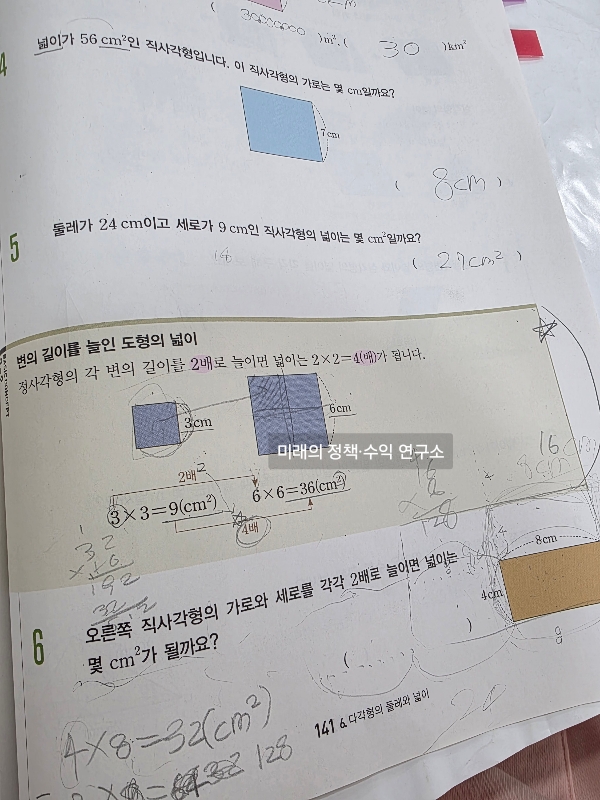 ( 30000000 )m², ( 30 )km²
4
넓이가 56 cm²인 직사각형입니다. 이 직사각형의 가로는 몇 cm일까요?
7cm
( 8cm )
5
둘레가 24 cm이고 세로가 9 cm인 직사각형의 넓이는 몇 cm²일까요?
( 27cm² )
변의 길이를 늘인 도형의 넓이
정사각형의 각 변의 길이를 2배로 늘이면 넓이는 2×2=4(배)가 됩니다.
3cm
6cm
미래의 정책·수익 연구소
16cm
8cm
2배
2
3×3=9(cm²)
6×6=36(cm²)
4배
16
× 8
128
32
×16
192
32
8cm
4cm
4
8
6
오른쪽 직사각형의 가로와 세로를 각각 2배로 늘이면 넓이는
몇 cm²가 될까요?
( )
4×8=32(cm²)
128
141 6. 다각형의 둘레와 넓이